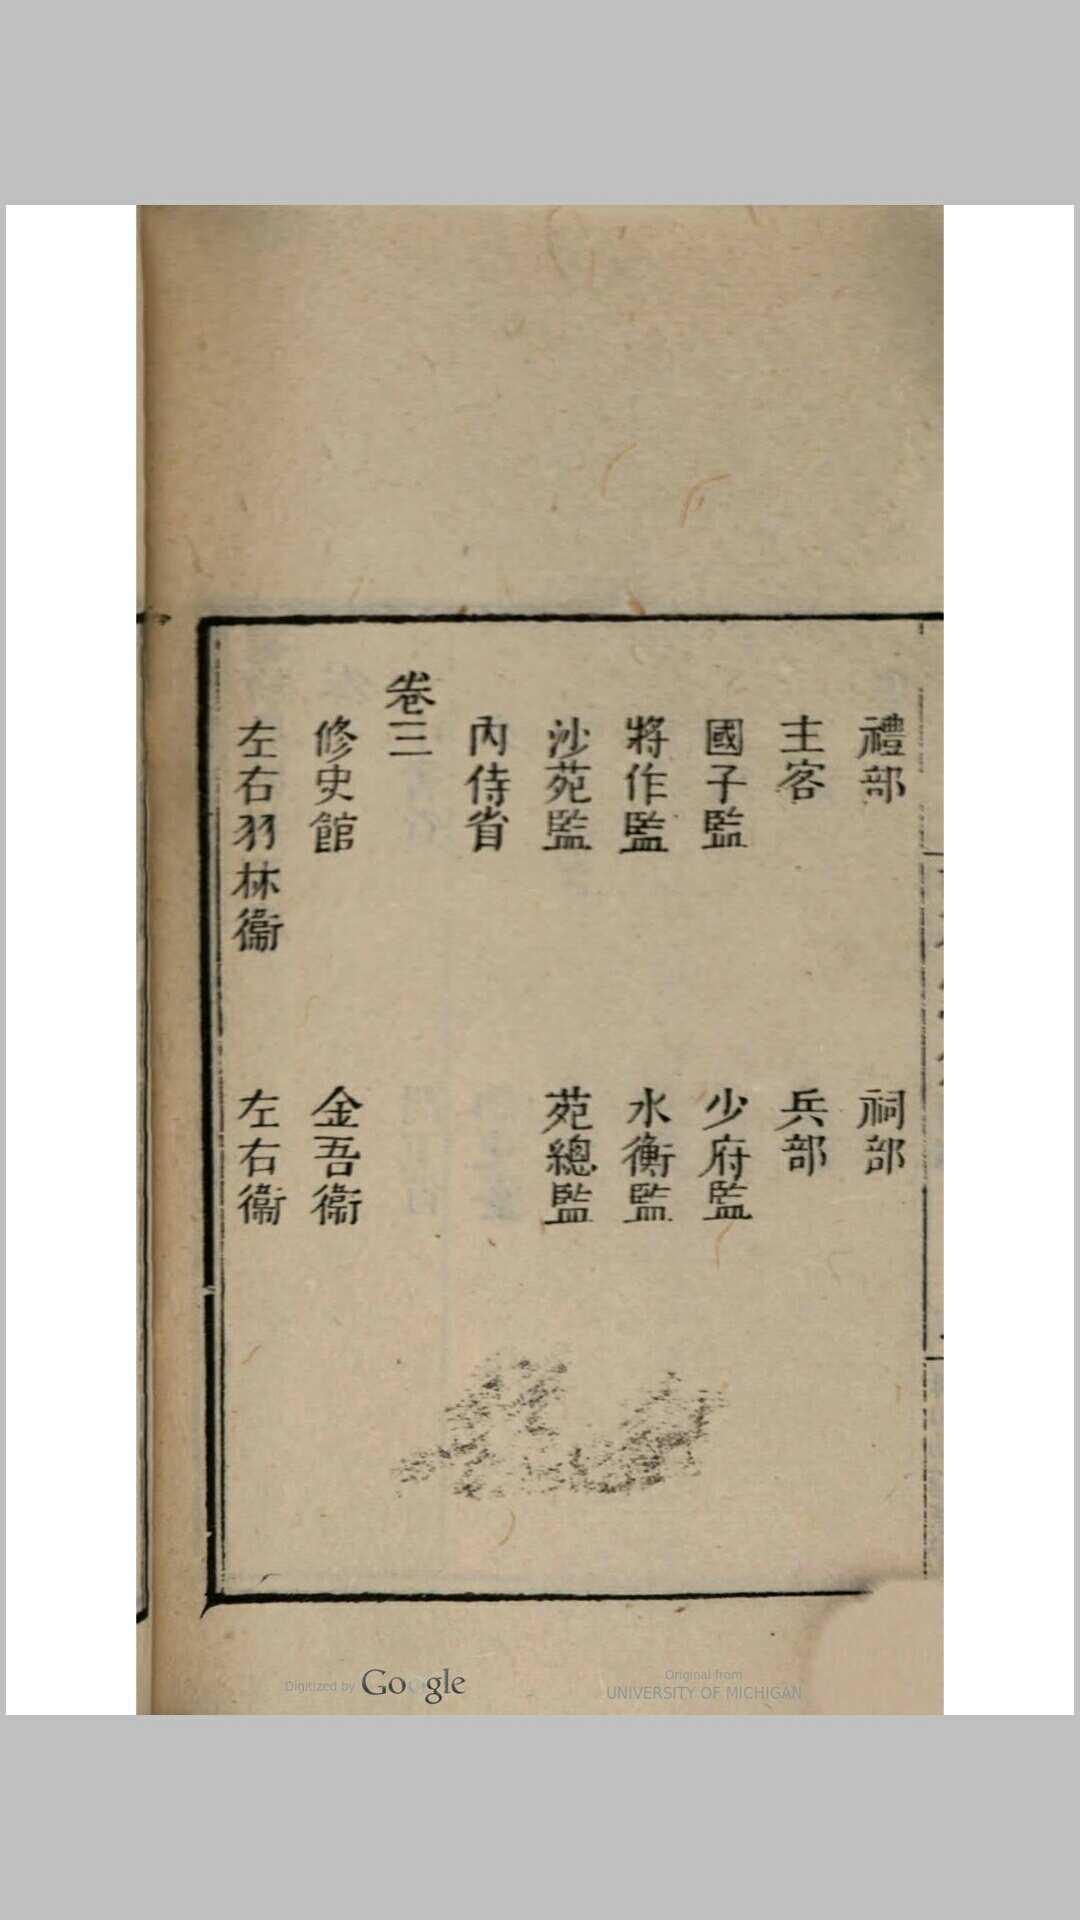 禮部　祠部
主客　兵部
國子監　少府監
將作監　水衡監
沙苑監　苑總監
內侍省
卷三
修史館　金吾衞
左右羽林衞　左右衞
Digitized by Google
Original from
UNIVERSITY OF MICHIGAN